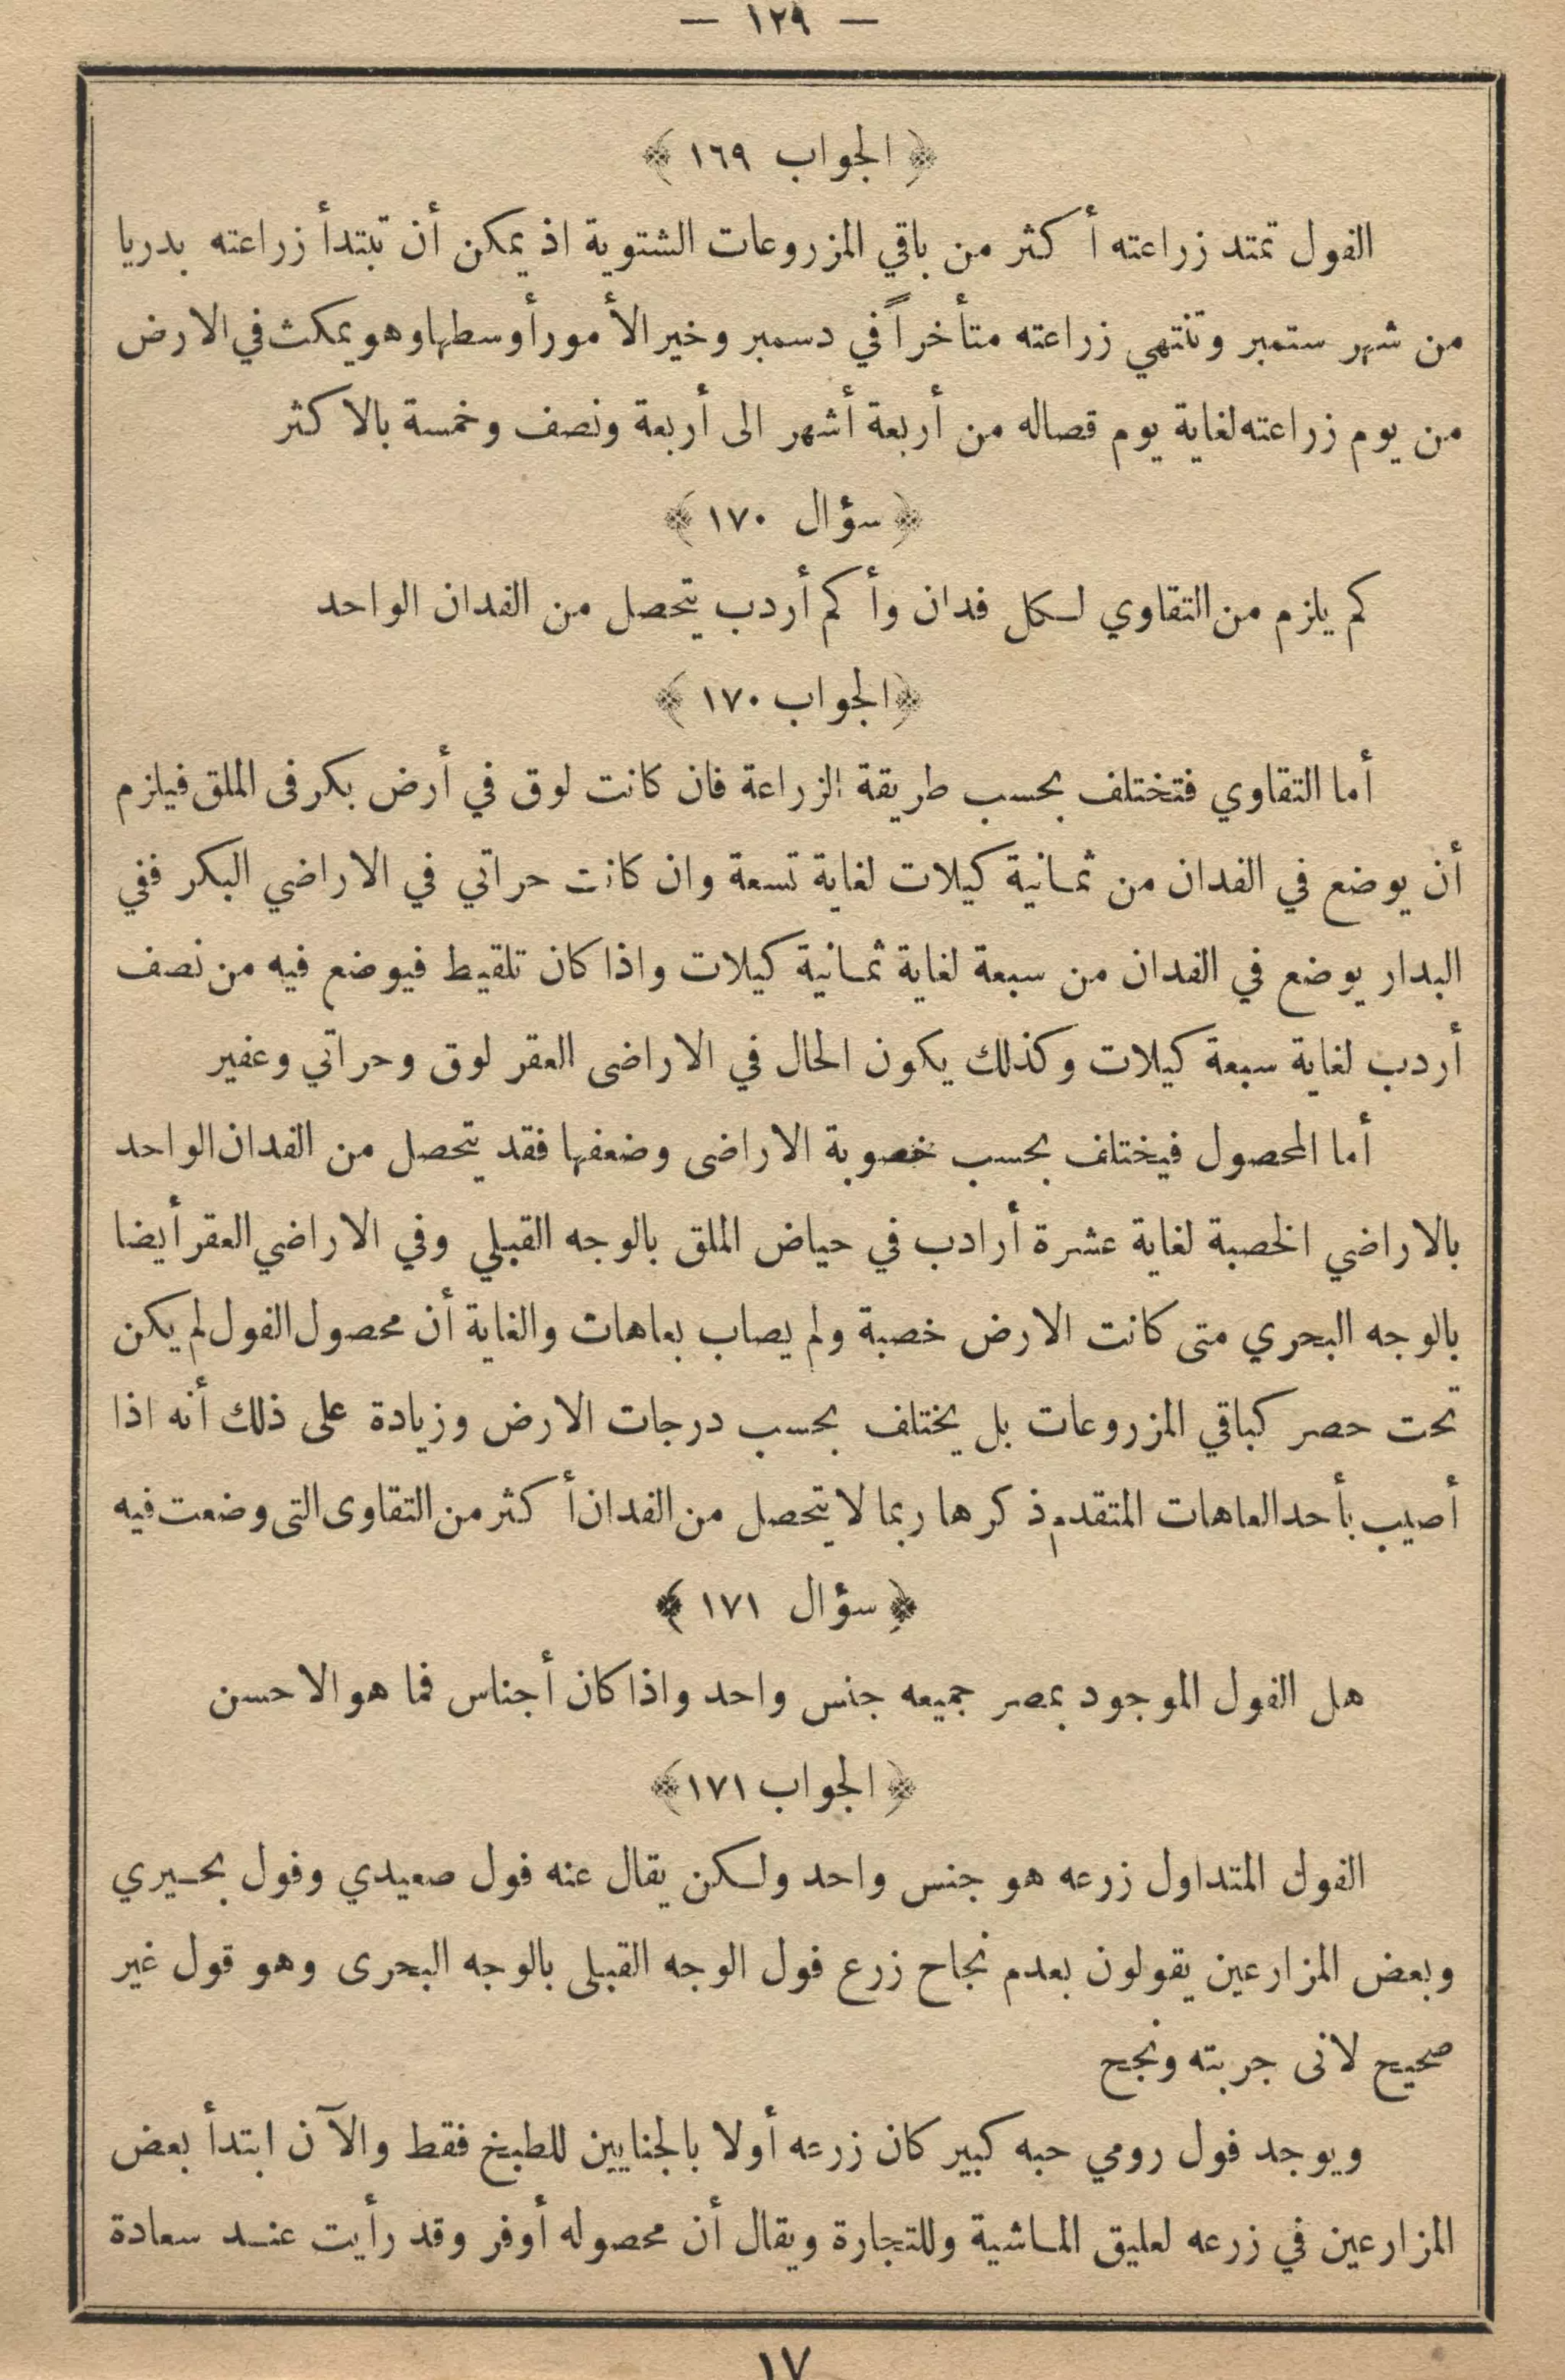 — ١٢٩ —
﴿ الجواب ١٦٩ ﴾
الفول تمتد زراعته أكثر من باقي المزروعات الشتوية اذ يمكن أن تبتدأ زراعته بدريا
من شهر ستمبر وتنتهي زراعته متأخراً في دسمبر وخير الأمور أوسطها وهو يمكث في الارض
من يوم زراعته لغاية يوم قصاله من أربعة أشهر الى أربعة ونصف وخمسة بالاكثر
﴿ سؤال ١٧٠ ﴾
كم يلزم من التقاوي لكل فدان وأكم أردب يتحصل من الفدان الواحد
﴿ الجواب ١٧٠ ﴾
أما التقاوي فتختلف بحسب طريقة الزراعة فان كانت لوق في أرض بكر فى الملق فيلزم
أن يوضع في الفدان من ثمانية كيلات لغاية تسعة وان كانت حراتي في الاراضي البكر ففي
البدار يوضع في الفدان من سبعة لغاية ثمانية كيلات واذا كان تلقيط فيوضع فيه من نصف
أردب لغاية سبعة كيلات وكذلك يكون الحال في الاراضى العقر لوق وحراتي وعفير
أما المحصول فيختلف بحسب خصوبة الاراضى وضعفها فقد يتحصل من الفدان الواحد
بالاراضي الخصبة لغاية عشرة أرادب في حياض الملق بالوجه القبلي وفي الاراضي العقر أيضا
بالوجه البحري متى كانت الارض خصبة ولم يصاب بعاهات والغاية أن محصول الفول لم يكن
تحت حصر كباقي المزروعات بل يختلف بحسب درجات الارض وزيادة على ذلك أنه اذا
أصيب بأحد العاهات المتقدم ذكرها ربما لا يتحصل من الفدان أكثر من التقاوى التى وضعت فيه
﴿ سؤال ١٧١ ﴾
هل الفول الموجود بمصر جميعه جنس واحد واذا كان أجناس فما هو الاحسن
﴿ الجواب ١٧١ ﴾
الفول المتداول زرعه هو جنس واحد ولكن يقال عنه فول صعيدي وفول بحيري
وبعض المزارعين يقولون بعدم نجاح زرع فول الوجه القبلى بالوجه البحرى وهو قول غير
صحيح لانى جربته ونجح
ويوجد فول رومي حبه كبير كان زرعه أولا بالجنايين للطبخ فقط والآن ابتدأ بعض
المزارعين في زرعه لعليق الماشية وللتجارة ويقال أن محصوله أوفر وقد رأيت عند سعادة
١٧